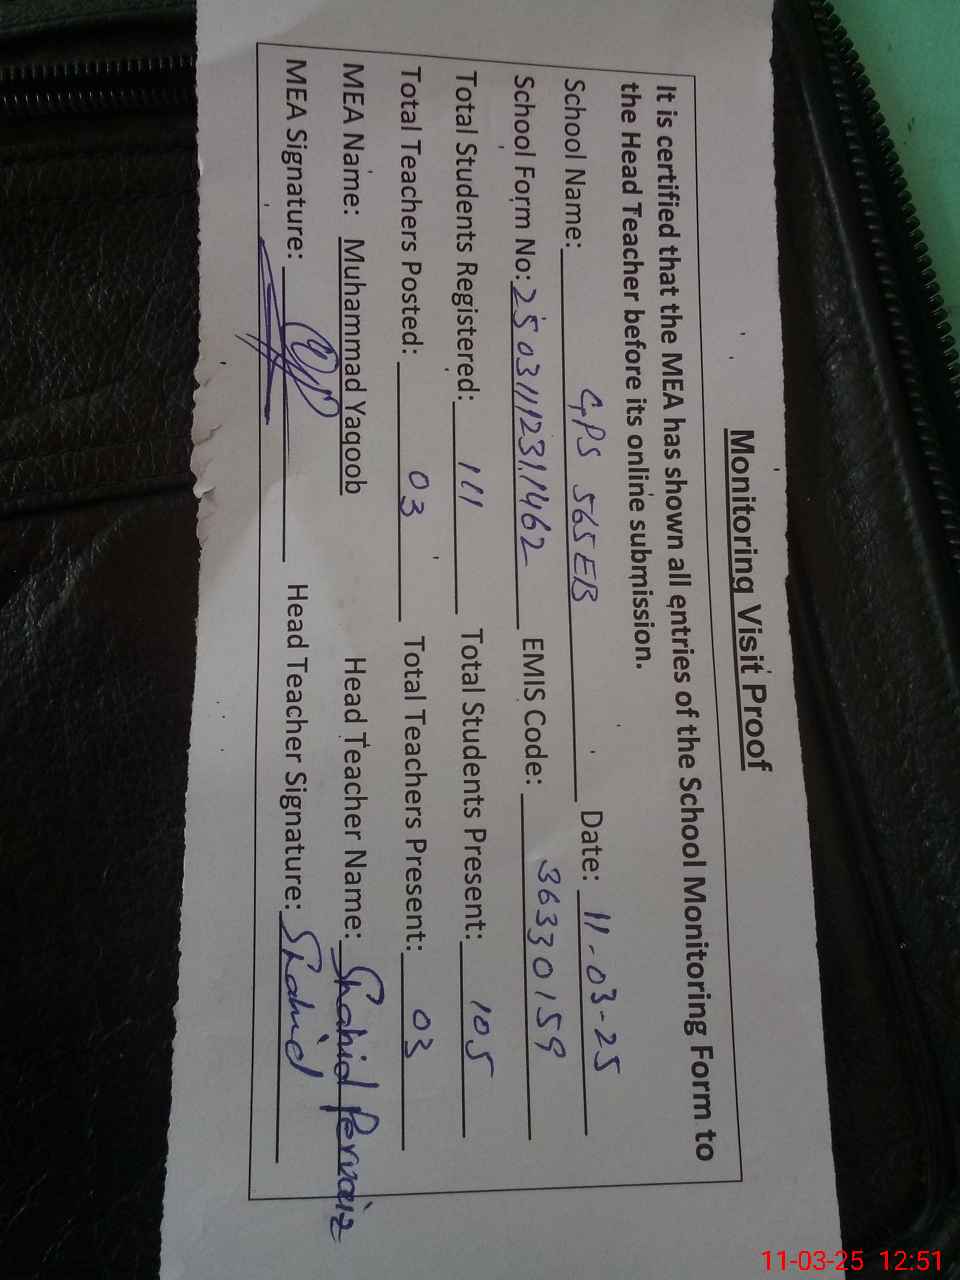 Monitoring Visit Proof
It is certified that the MEA has shown all entries of the School Monitoring Form to
the Head Teacher before its online submission.
School Name: GPS 565 EB Date: 11-03-25
School Form No: 25031112311462 EMIS Code: 36330159
Total Students Registered: 111 Total Students Present: 105
Total Teachers Posted: 03 Total Teachers Present: 03
MEA Name: Muhammad Yaqoob Head Teacher Name: Shahid Pervaiz
MEA Signature: Head Teacher Signature: Shahid
11-03-25 12:51